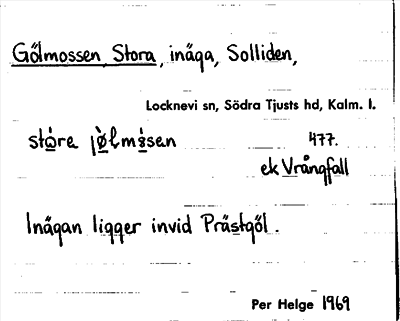 Gölmossen, Stora, inäga, Solliden,
Locknevi sn, Södra Tjusts hd, Kalm. l.
stòre jø̀lmåsen 477.
ek Vrångfall
Inägan ligger invid Prästgöl.
Per Helge 1969